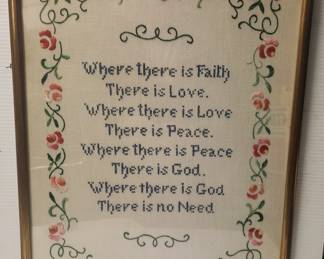 Where there is Faith
There is Love.
Where there is Love
There is Peace.
Where there is Peace
There is God.
Where there is God
There is no Need